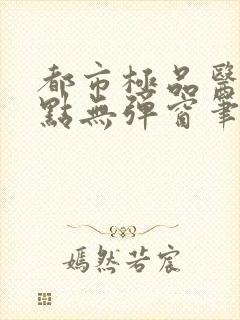 都市極品醫
點無彈窗筆
嫣然若宸